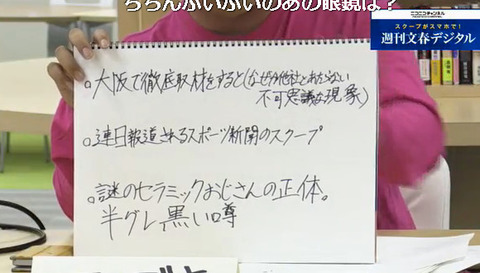 ちちんぷいぷいのあの眼鏡は？
ニコニコチャンネル
スクープがスマホで！
週刊文春デジタル
○大阪で徹底取材をすると(なぜか他社とあたらない
不可思議な現象)
○連日報道されるスポーツ新聞のスクープ
○謎のセラミックおじさんの正体。
半グレ黒い噂